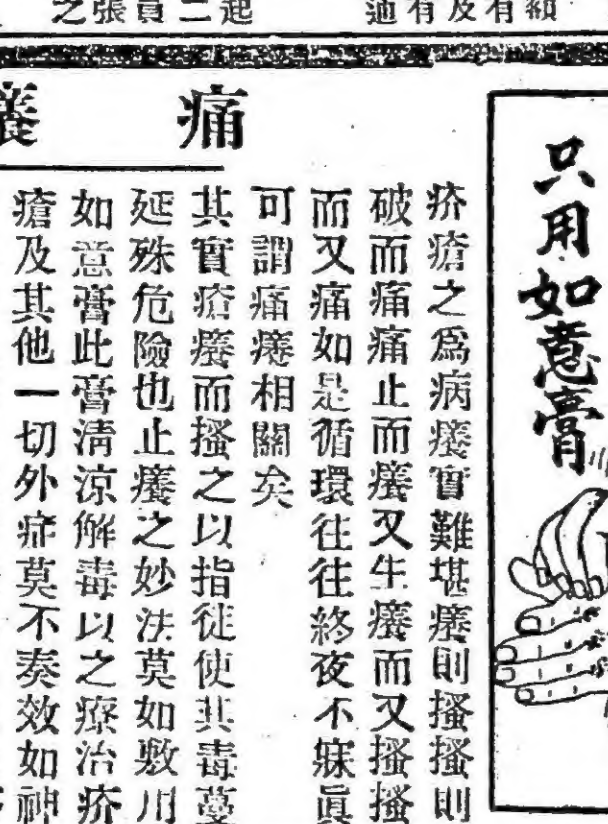 起二員張之
額有及有迺
只用如意膏
痛癢
疥瘡之爲病癢實難堪癢則搔搔則
破而痛痛止而癢又生癢而又搔搔
而又痛如是循環往往終夜不寐眞
可謂痛癢相關矣
其實瘡癢而搔之以指徒使其毒蔓
延殊危險也止癢之妙法莫如敷用
如意膏此膏清涼解毒以之療治疥
瘡及其他一切外症莫不奏效如神